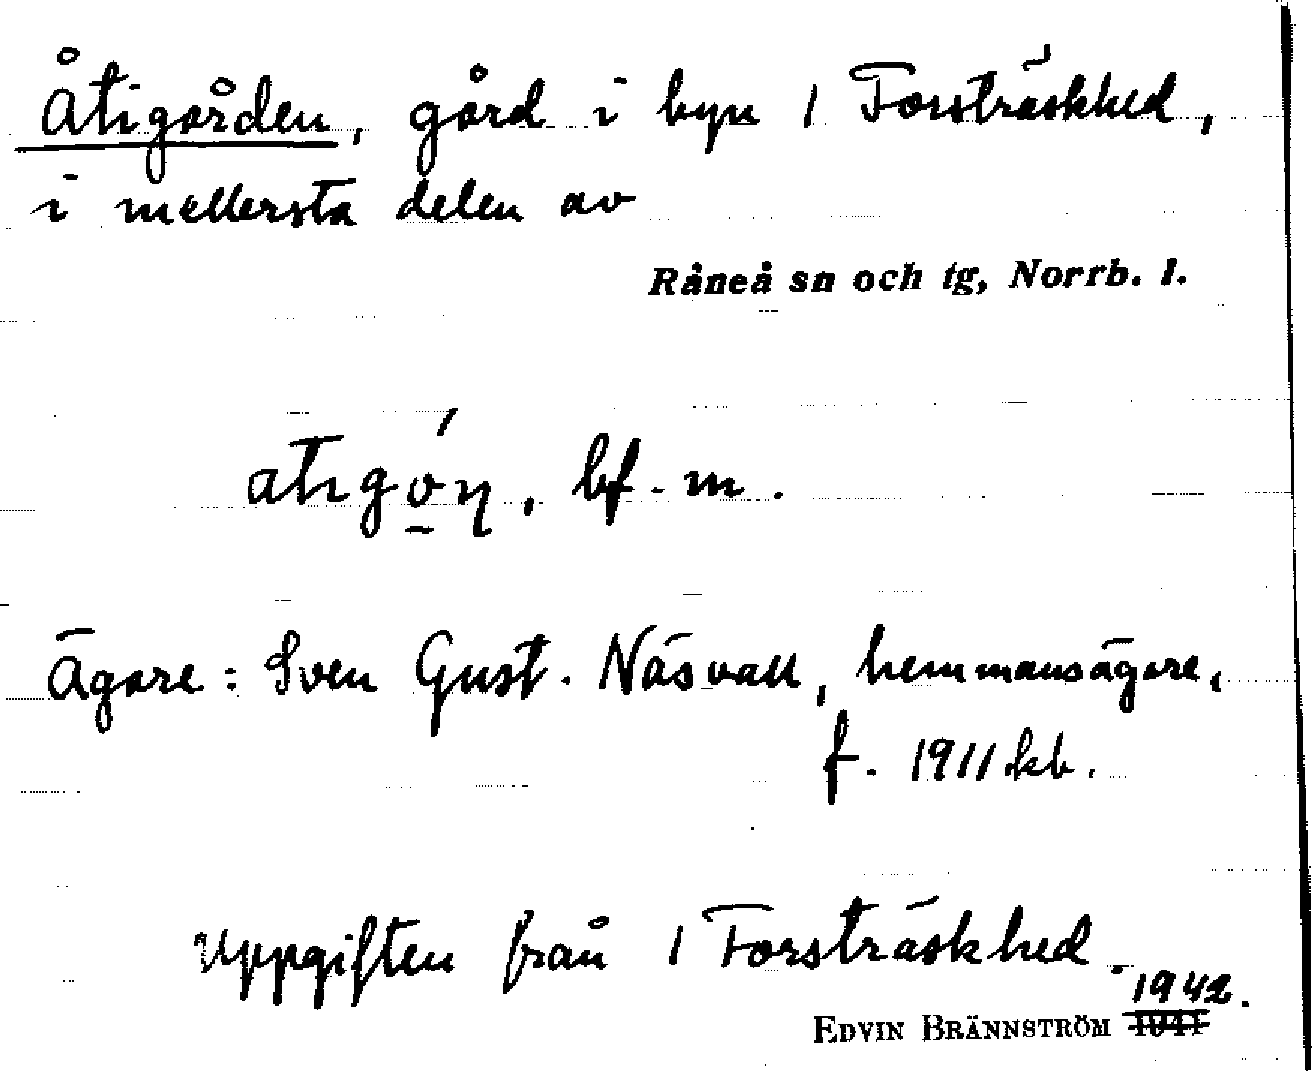 Åtigården, gård i byn 1 Forsträskhed,
i mellersta delen av
Råneå sn och tg, Norrb. l.
atıgó̱ṇ, bf. m.
Ägare: Sven Gust. Näsvall, hemmansägare,
f. 1911 kb.
Uppgiften från 1 Forsträskhed.
1942.
EDVIN BRÄNNSTRÖM 1941